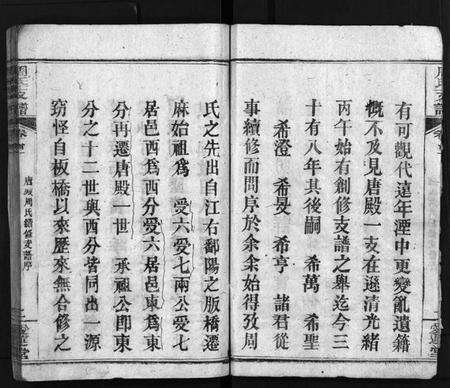 有可觀代遠年湮中更變亂遺籍
慨不及見唐殿一支在遜清光緒
丙午始有創修支譜之舉迄今三
十有八年其後嗣 希萬 希聖
希澄 希旻 希亨 諸君從
事續修而問序於余余始得攷周
氏之先出自江右鄱陽之版橋遷
麻始祖爲 受六愛七兩公愛七
居邑西爲西分愛六居邑東爲東
分再遷唐殿一世 承祖公卽東
分之十二世與西分皆同出一源
竊怪自板橋以來歷來無合修之
唐坂周氏續修支譜序
愛蓮堂